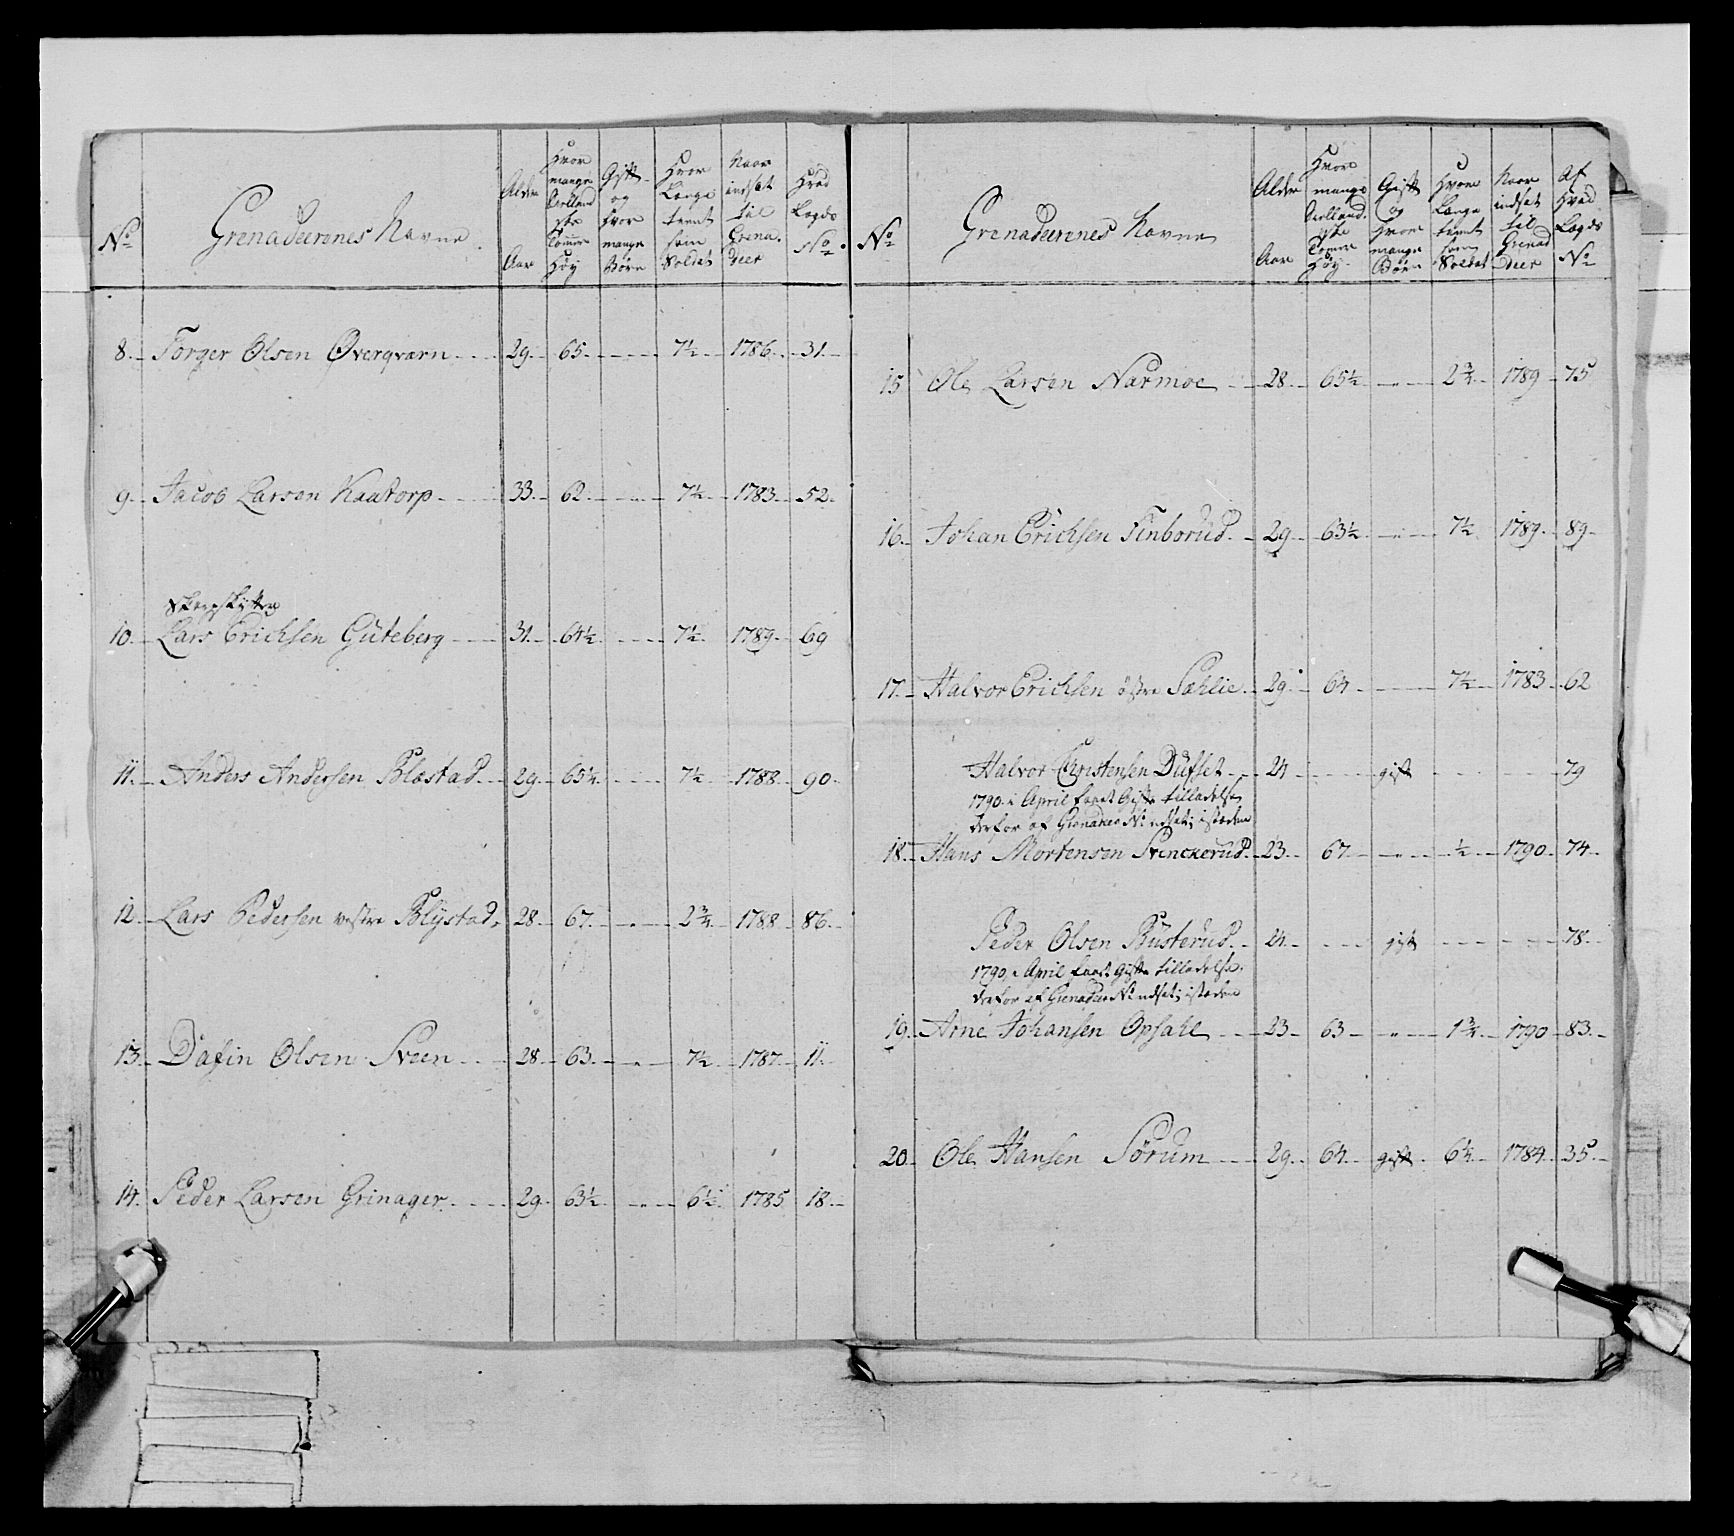 No
Grenadeerenes Navne
Alder Aar
Hvor mange Siælland ske Tommer Høy
Gift og hvor mange Børn
Hvor Længe tient som Soldat
Naar indsat til Grena. deer
Hvad Lægds No
8. Torger Olsen Øverqvarn 29. 65. 7½ 1786. 31.
9. Jacob Larsen Kaatorp 33. 62. 7½ 1783. 52.
Skarpskytter
10. Lars Erichsen Guteberg 31. 64½ 7½ 1789. 69
11. Anders Andersen Blæstad 29. 65¼ 7½ 1788. 90.
12. Lars Pedersen vestre Blystad. 28. 67. 2¾ 1788. 86.
13. Dafin Olsen Sveen 28. 63. 7½ 1787. 11.
14. Peder Larsen Grinager 29. 63½ 6½ 1785 18.
No
Grenadeerenes Navne
Alder Aar
Hvor mange Siælland. ske Tommer Høy
Gift og hvor mange Børn
Hvor Længe tient som Soldat
Naar indsat til Grenad deer
Af Hvad Lægds No
15 Ole Larsen Narmoe 28. 65½ 2¾ 1789 75
16. Johan Erichsen Finborud 29. 63½ 7½ 1789. 89.
17. Halvor Erichsen østre Sæhlie 29. 64. 7½ 1783. 62
Halvor Christensen Dufset 24. gift 79
1790. i April faaet Gifte tilladelse
derfor af Grenadeer No udsat; istæden
18. Hans Mortensen Svenckerud. 23. 67. ½ 1790. 74.
Peder Olsen Busterud. 24. gift 78.
1790. i April faaet Gifte tilladelse.
derfor af Grenadeer No udsat; istæden
19. Arne Johansen Opsahl 23. 63 1¾ 1790 83.
20. Ole Hansen Sørum 29. 64. gift 6¼ 1784. 35.